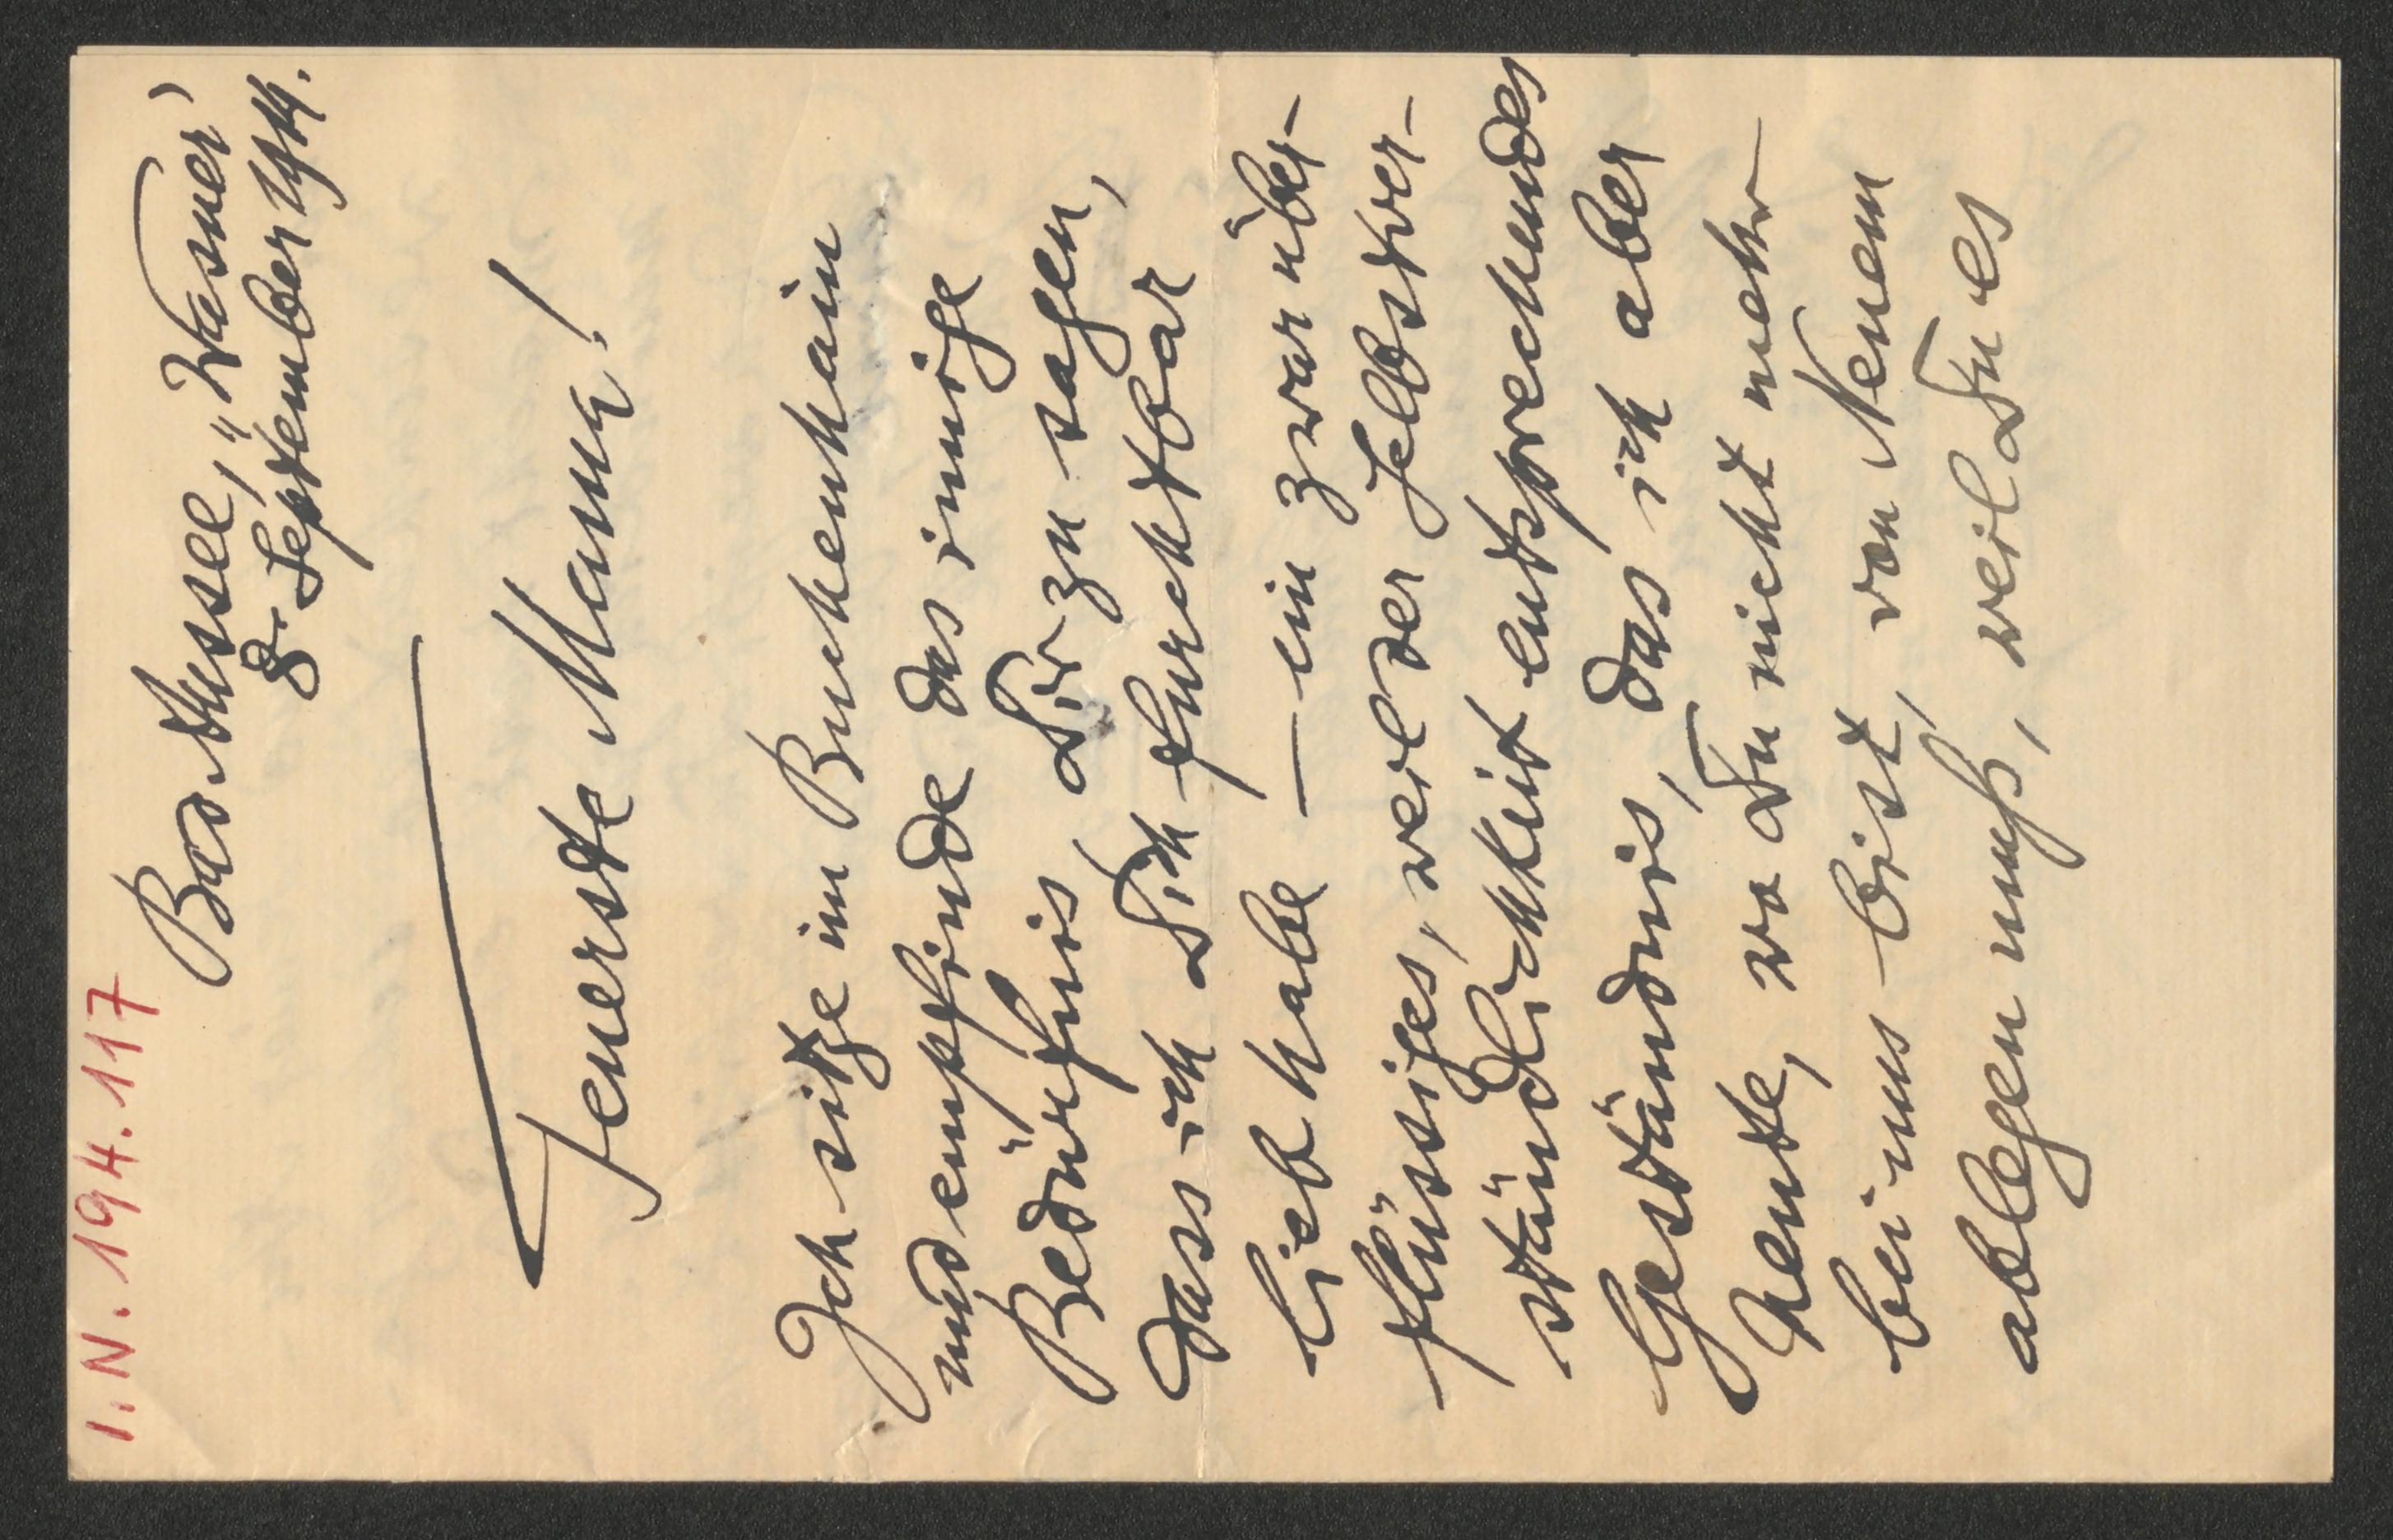 I.N. 194.117
Bad Aussee, "Wasner"
8. September 1914.
Teuerste Mama!
Ich sitze im Buchenhain
und empfinde das innige
Bedürfnis, Dir zu sagen,
dass ich Dich furchtbar
lieb habe – ein zwar über-
flüssiges, weil der Selbstver-
ständlichkeit entsprechendes
Geständnis, das ich aber
heute, wo Du nicht mehr
bei uns bist, von Neuem
ablegen muß, weil Du es